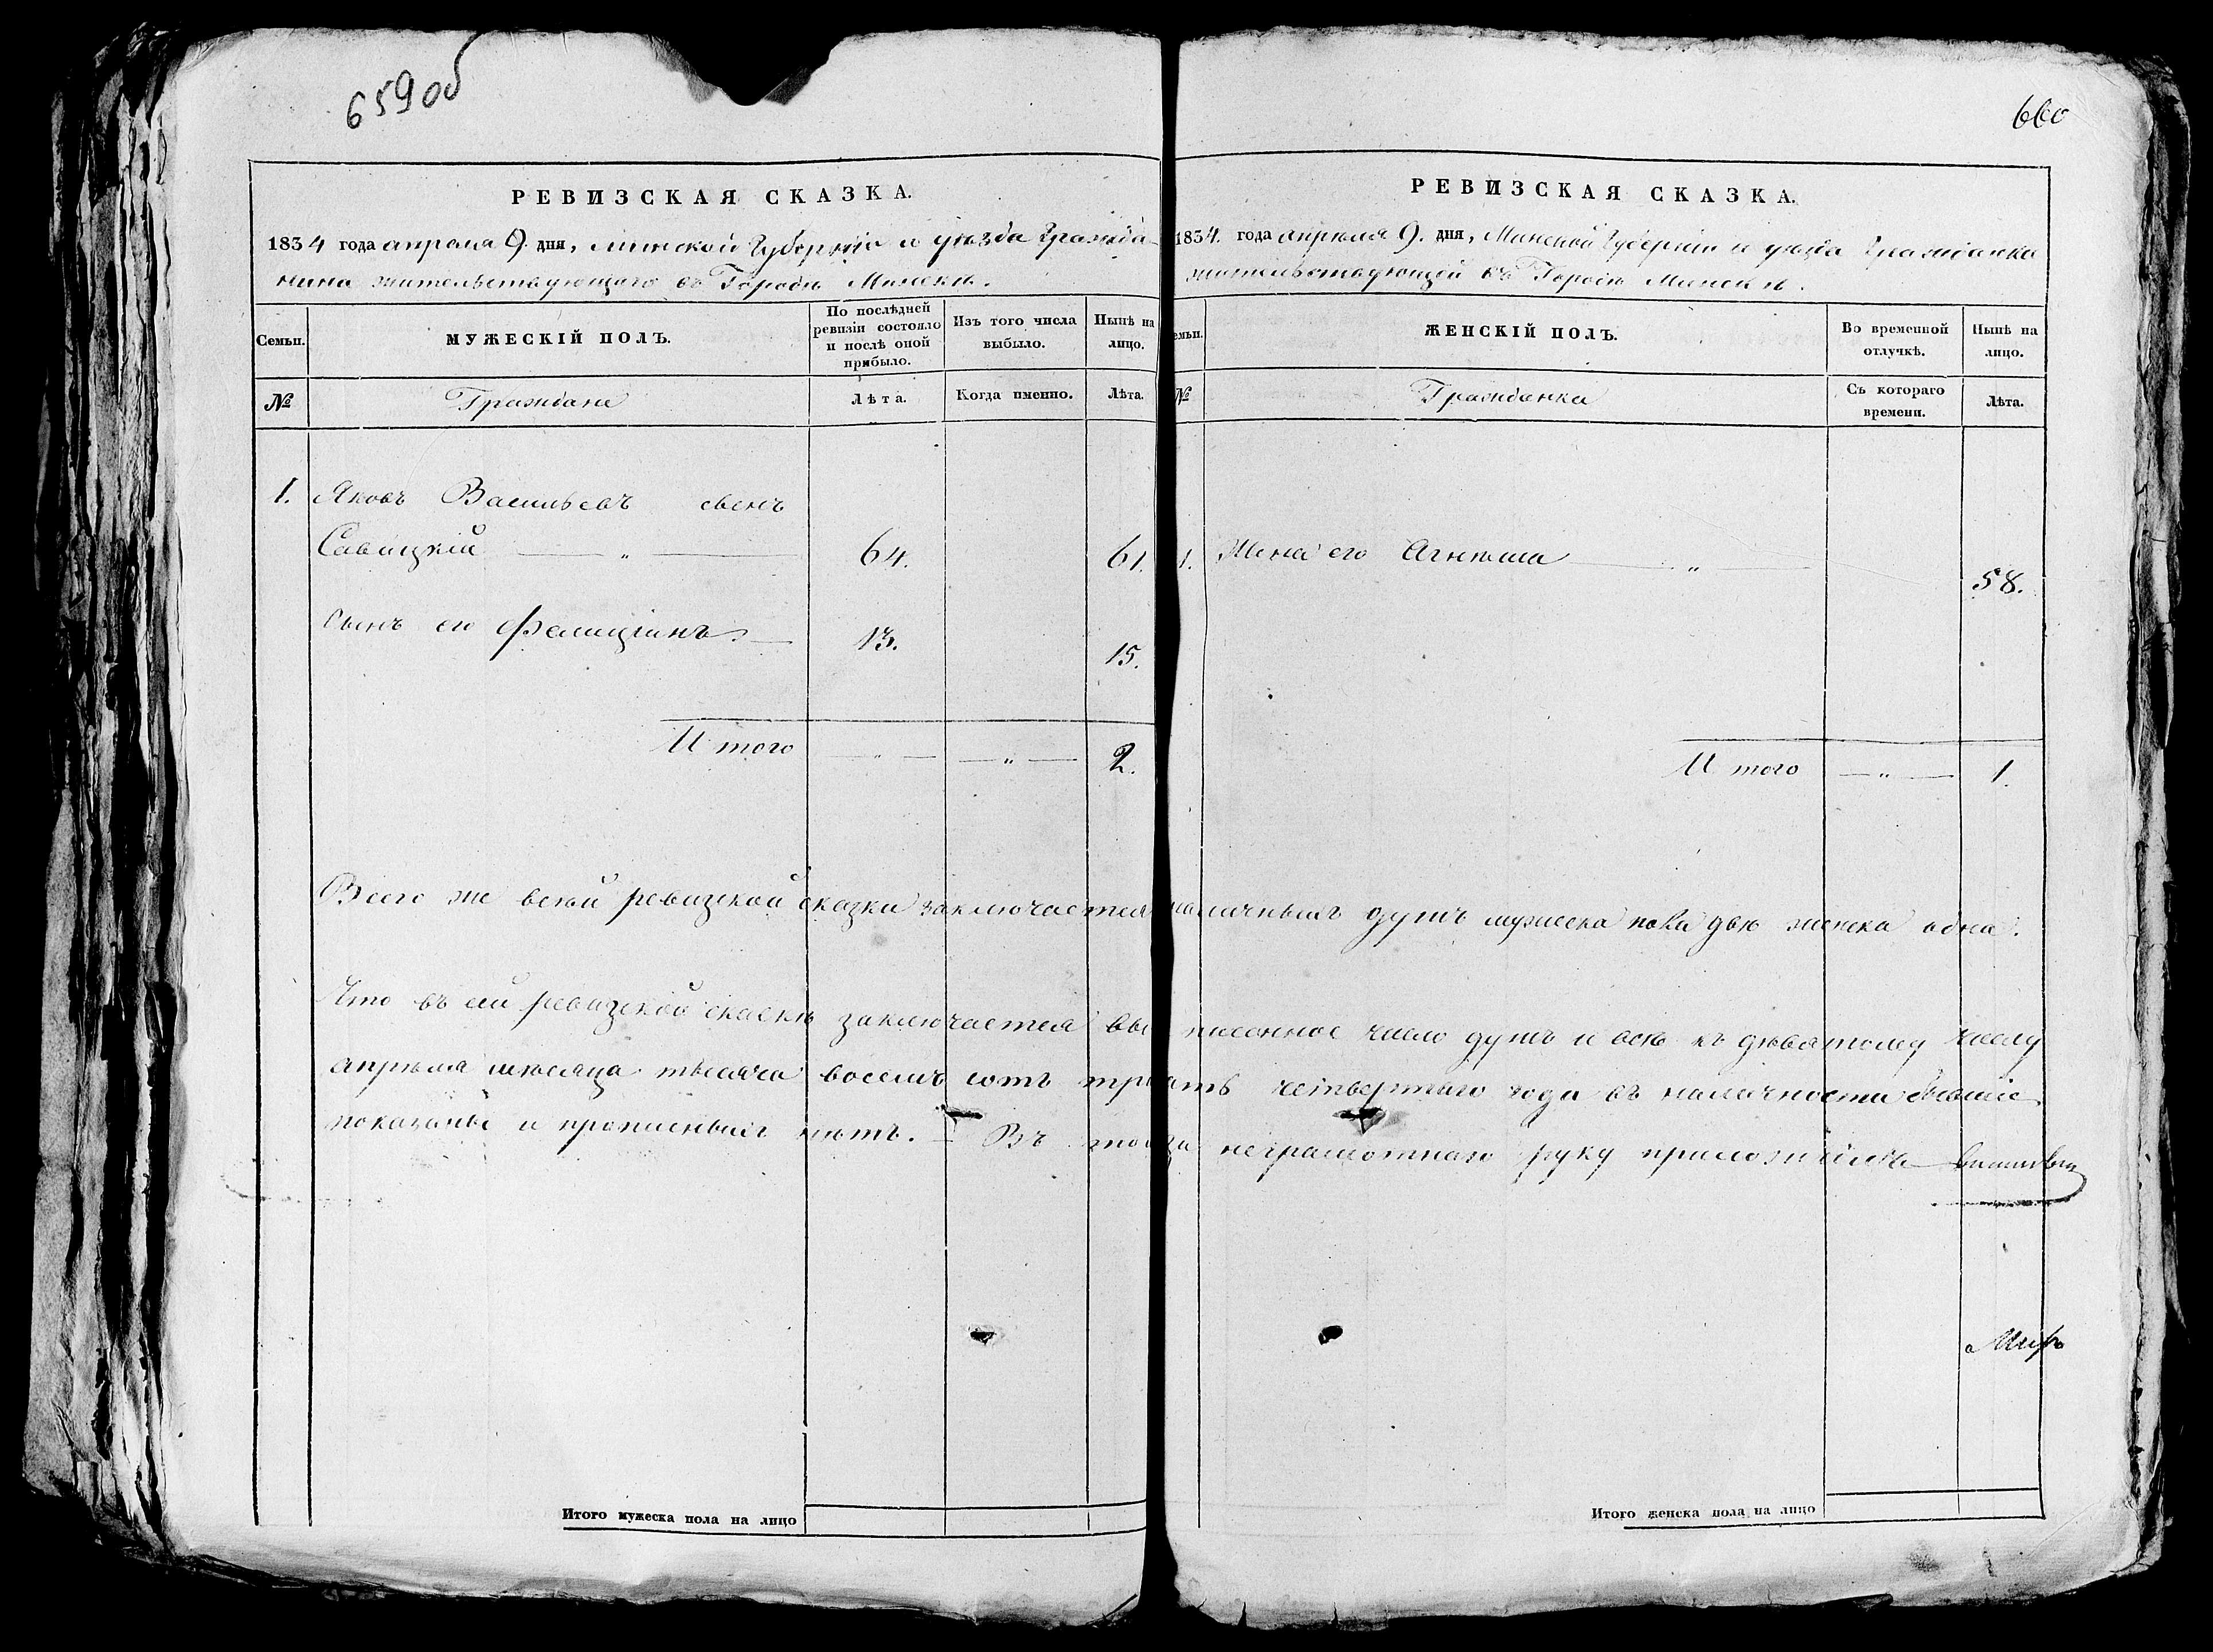 659 об
РЕВИЗСКАЯ СКАЗКА.
1834 года апреля 9. дня, Минской Губерніи и уѣзда Гражда-
нина жительствующаго въ Городѣ Минскѣ.
Семьи.
МУЖЕСКІЙ ПОЛЪ.
По послѣдней
ревизіи состояло
и послѣ оной
прибыло.
Изъ того числа
выбыло.
Нынѣ на
лицо.
№
Граждане
Лѣта.
Когда именно.
Лѣта.
1. Яковъ Васильевъ сынъ
Савицкій — „ — 64. 61.
Сынъ его Фелиціянъ. — 13. 15.
И того — „ — — „ — 2.
660
РЕВИЗСКАЯ СКАЗКА.
1834. года апрѣля 9. дня, Минской Губерніи и уѣзда Гражданка
жительствующей въ Городѣ Минскѣ.
емьи.
ЖЕНСКІЙ ПОЛЪ.
Во временной
отлучкѣ.
Нынѣ на
лицо.
№
Гражданка
Съ котораго
времени.
Лѣта.
1. Жена его Агнѣша — „ — 58.
И того — „ — 1.
Всего же всей ревизской сказки заключается наличныхъ душъ мужеска пола двѣ женска одна.
Что въ сей ревизской скаскѣ заключается вы писонное число душъ и всѣ къ дѣвятому числу
апрѣля мѣсяца тысяча восемъ сотъ трить четвертаго года въ наличности бывшіе
показаны и прописныхъ нѣтъ. — Въ неграмотнаго руку приложилъ
Миръ
Итого мужеска пола на лицо
Итого женска пола на лицо